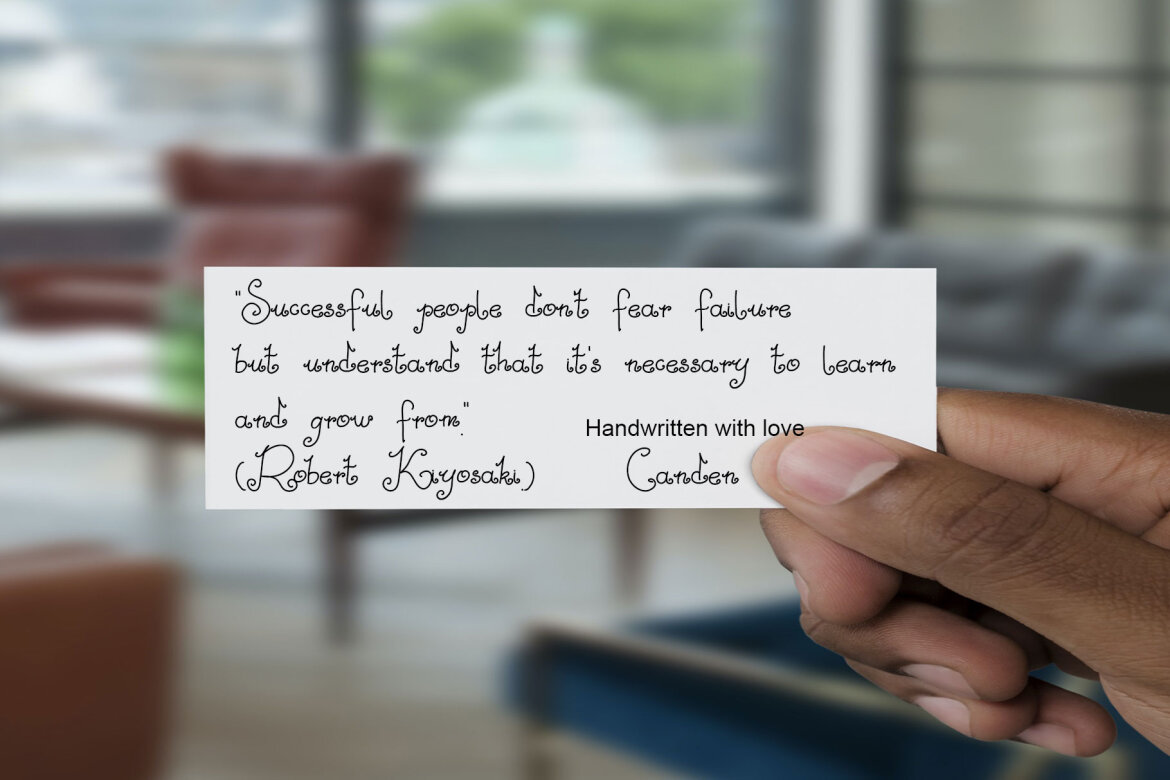 "Successful people don't fear failure
but understand that it's necessary to learn
and grow from."
(Robert Kiyosaki.)
Handwritten with love
Canden